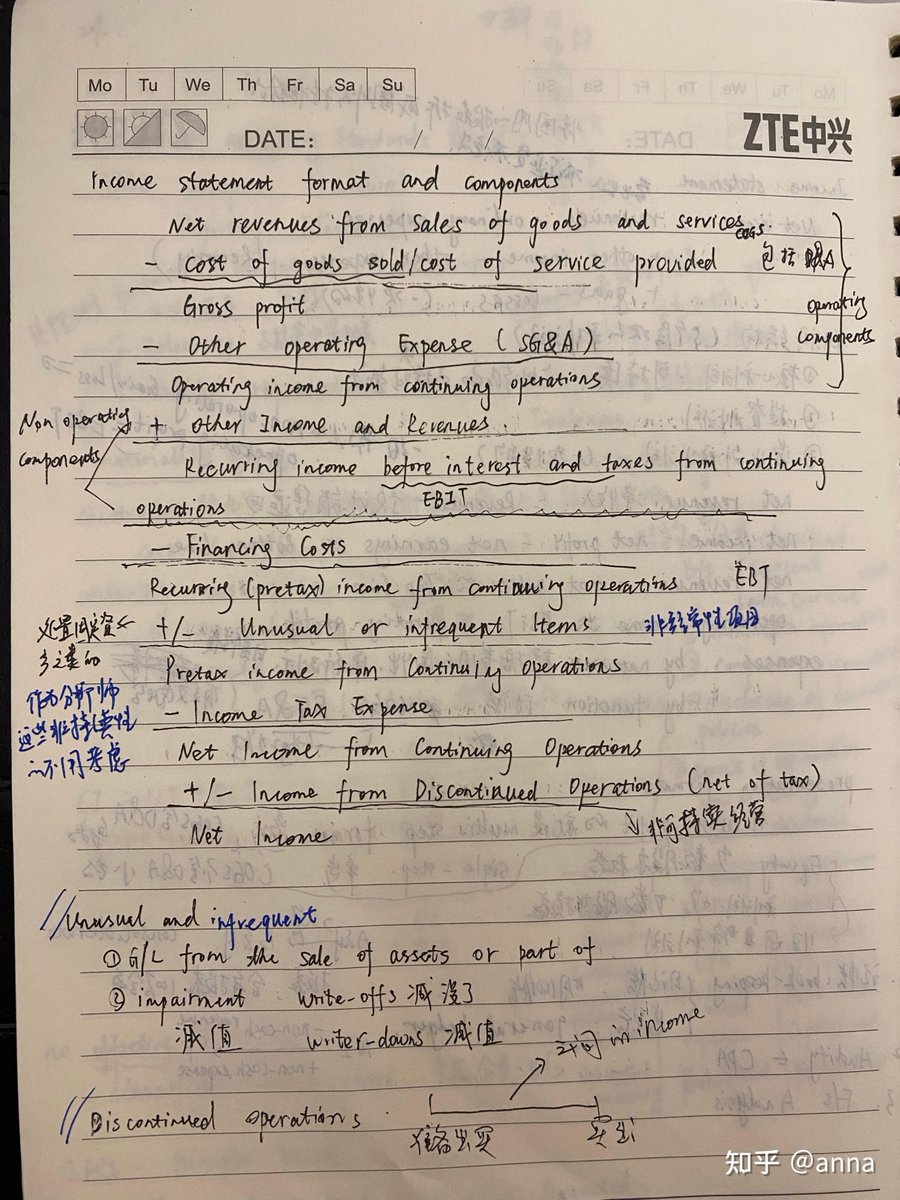 Mo Tu We Th Fr Sa Su
DATE: / /
ZTE中兴
Income statement format and components
Net revenues from sales of goods and services
COGS
- cost of goods sold/cost of service provided 包括 D&A
Gross profit
- Other operating Expense (SG&A)
operating components
Operating income from continuing operations
Non operating components
+ other Income and Revenues
Recurring income before interest and taxes from continuing
operations EBIT
- Financing Costs
Recurring (pretax) income from continuing operations EBT
+/- Unusual or infrequent Items 非经常性项目
Pretax income from Continuing Operations
- Income Tax Expense
作为分析师
这些非持续性
不用考虑
Net Income from Continuing Operations
+/- Income from Discontinued Operations (net of tax)
Net Income
非可持续经营
// Unusual and infrequent
① G/L from the sale of assets or part of
② impairment write-offs 减没了
减值 writer-downs 减值
// Discontinued operations
准备出卖
卖出
中间 in income
知乎 @anna